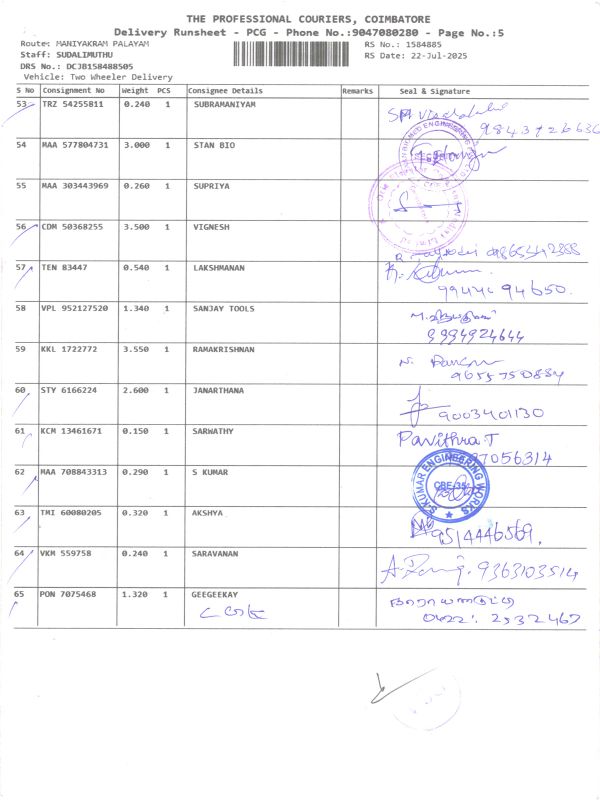 THE PROFESSIONAL COURIERS, COIMBATORE
Delivery Runsheet - PCG - Phone No.:9047080280 - Page No.:5
Route: MANIYAKRAM PALAYAM
RS No.: 1584885
Staff: SUDALIMUTHU
RS Date: 22-Jul-2025
DRS No.: DCJB158488505
Vehicle: Two Wheeler Delivery
S No Consignment No Weight PCS Consignee Details Remarks Seal & Signature
53 TRZ 54255811 0.240 1 SUBRAMANIYAM
54 MAA 577804731 3.000 1 STAN BIO
55 MAA 303443969 0.260 1 SUPRIYA
56 CDM 50368255 3.500 1 VIGNESH
57 TEN 83447 0.540 1 LAKSHMANAN
94650.
58 VPL 952127520 1.340 1 SANJAY TOOLS
9994924644
59 KKL 1722772 3.550 1 RAMAKRISHNAN
9655750884
60 STY 6166224 2.600 1 JANARTHANA
9003401130
61 KCM 13461671 0.150 1 SARWATHY Pavithra T
7056314
62 MAA 708843313 0.290 1 S KUMAR
S.KUMAR ENGINEERING WORKS
CBE-35
63 TMI 60080205 0.320 1 AKSHYA
9514446569.
64 VKM 559758 0.240 1 SARAVANAN
9363103514
65 PON 7075468 1.320 1 GEEGEEKAY
0422: 2532467